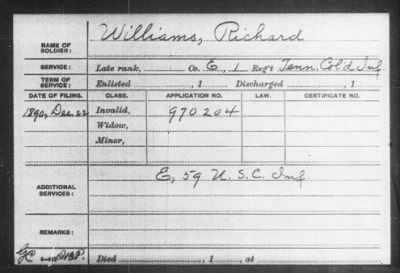 NAME OF SOLDIER: Williams, Richard
SERVICE: Late rank, Co. E, 1 Reg't Tenn. Col'd Inf
TERM OF SERVICE: Enlisted , 1 Discharged , 1
DATE OF FILING. CLASS. APPLICATION NO. LAW. CERTIFICATE NO.
1890, Dec. 22 Invalid, 970204
Widow,
Minor,
ADDITIONAL SERVICES: E, 59 U.S.C. Inf.
REMARKS:
Died , 1 , at